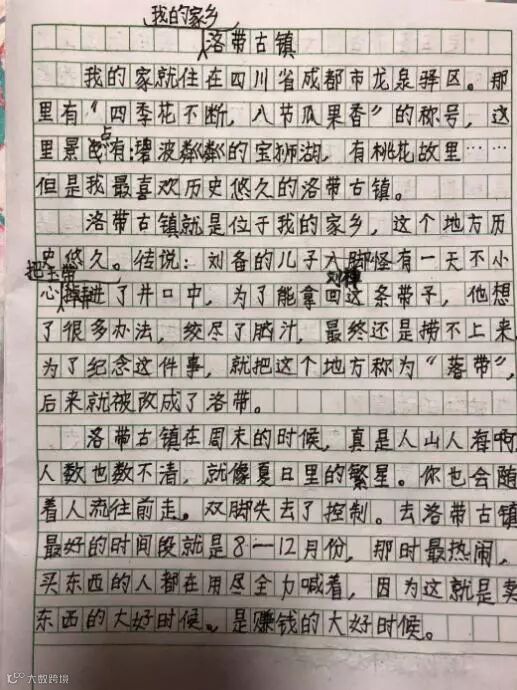 我的家乡
洛带古镇
我的家就住在四川省成都市龙泉驿区。那
里有“四季花不断，八节瓜果香”的称号，这
里景点有：碧波粼粼的宝狮湖，有桃花故里……
但是我最喜欢历史悠久的洛带古镇。
洛带古镇就是位于我的家乡，这个地方历
史悠久。传说：刘备的儿子刘禅有一天不小
心把玉带掉进了井口中，为了能拿回这条带子，他想
了很多办法，绞尽了脑汁，最终还是捞不上来，
为了纪念这件事，就把这个地方称为“落带”，
后来就被改成了洛带。
洛带古镇在周末的时候，真是人山人海啊，
人数也数不清，就像夏日里的繁星。你也会随
着人流往前走。双脚失去了控制。去洛带古镇
最好的时间段就是8—12月份，那时最热闹，
买东西的人都在用尽全力喊着，因为这就是卖
东西的大好时候。是赚钱的大好时候。
大数跨境